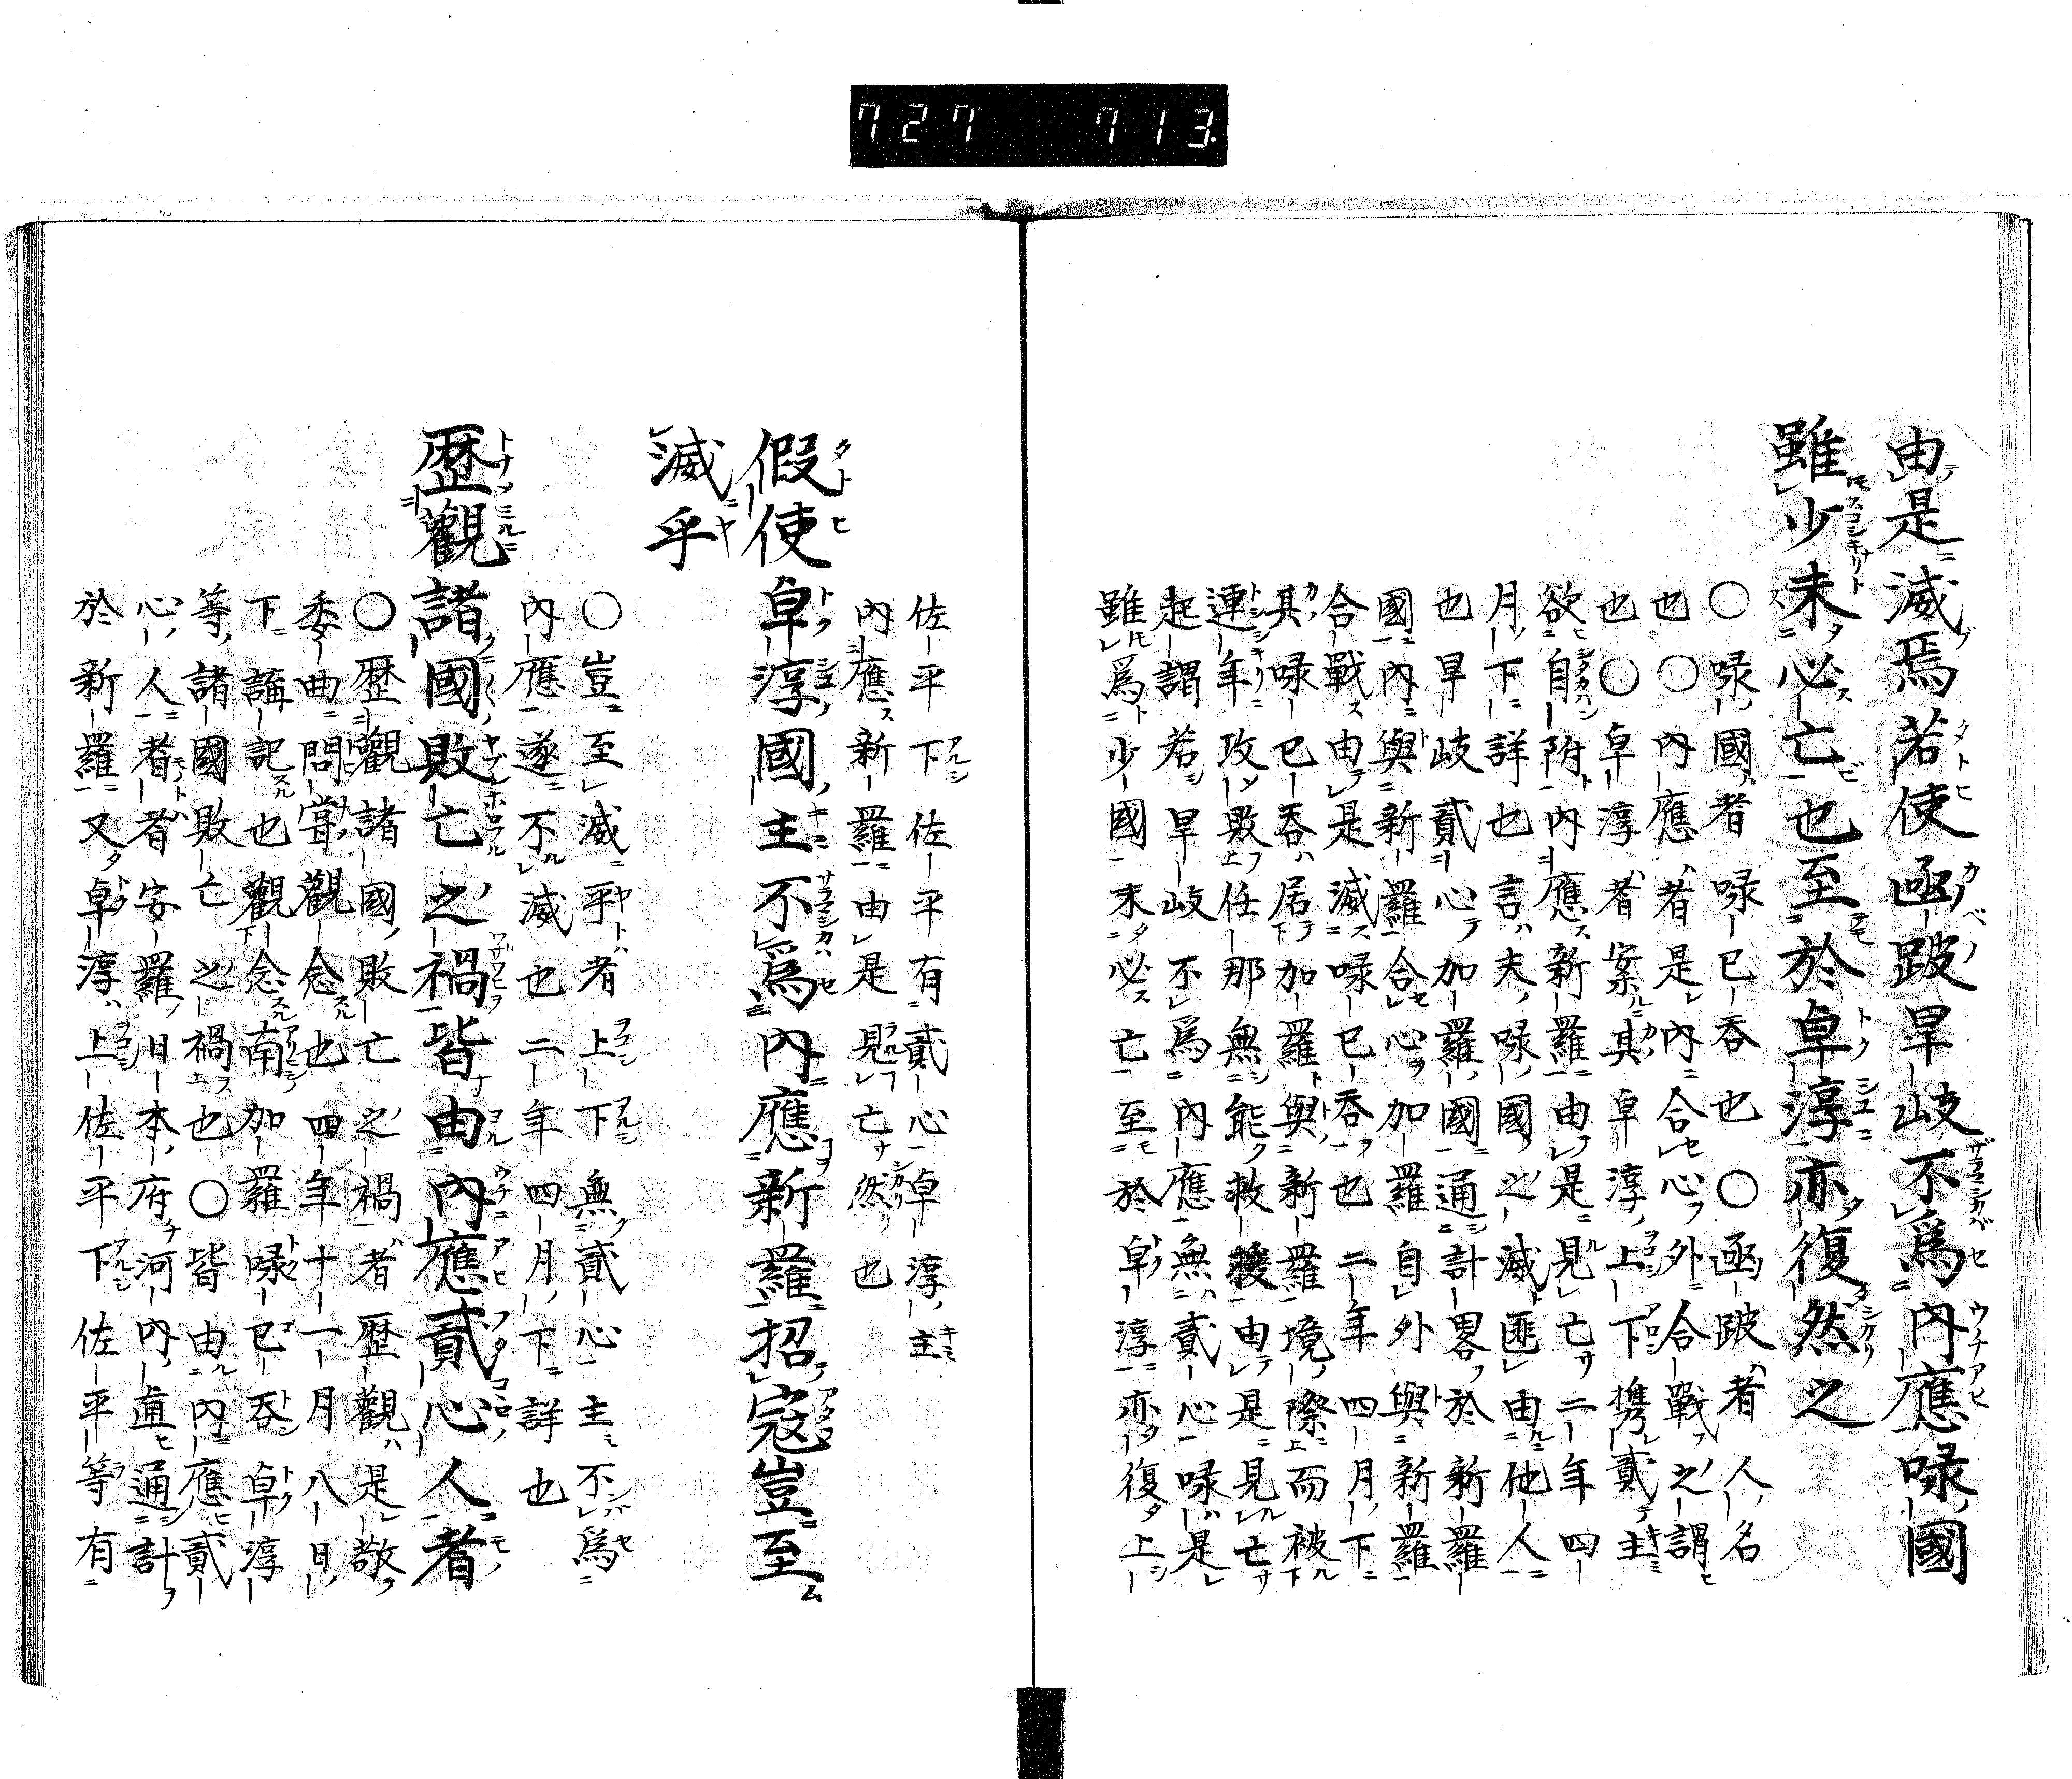 727 713
由是滅焉若使函跛旱岐不爲內應㖨國
雖少未必亡也至於卓淳亦復然之
○㖨國者㖨己吞也○函跛者人名
也○內應者是內合心外合戰之謂
也○卓淳者案其卓淳上下携貳主
欲自附內應新羅由是見亡二年四
月下詳也言夫㖨國之滅匪由他人
也旱岐貳心加羅國通計畧於新羅
國內與新羅合心加羅自外與新羅
合戰由是滅㖨己吞也二年四月下
其㖨己吞居加羅與新羅境際而被
連年攻敗任那無能救援由是見亡
起謂若旱岐不爲內應無貳心㖨是
雖爲少國未必亡至於卓淳亦復上
佐平下佐平有貳心卓淳主
內應新羅由是見亡然也
假使卓淳國主不爲內應新羅招寇豈至
滅乎
○豈至滅乎者上下無貳心主不爲
內應遂不滅也二年四月下詳也
歷觀諸國敗亡之禍皆由內應貳心人者
○歷觀諸國敗亡之禍者歷觀是敬
委曲問當觀念也四年十一月八日
下講記也觀念南加羅㖨己吞卓淳
等諸國敗亡之禍也○皆由內應貳
心人者者安羅日本府河內直通計
於新羅又卓淳上佐平下佐平等有